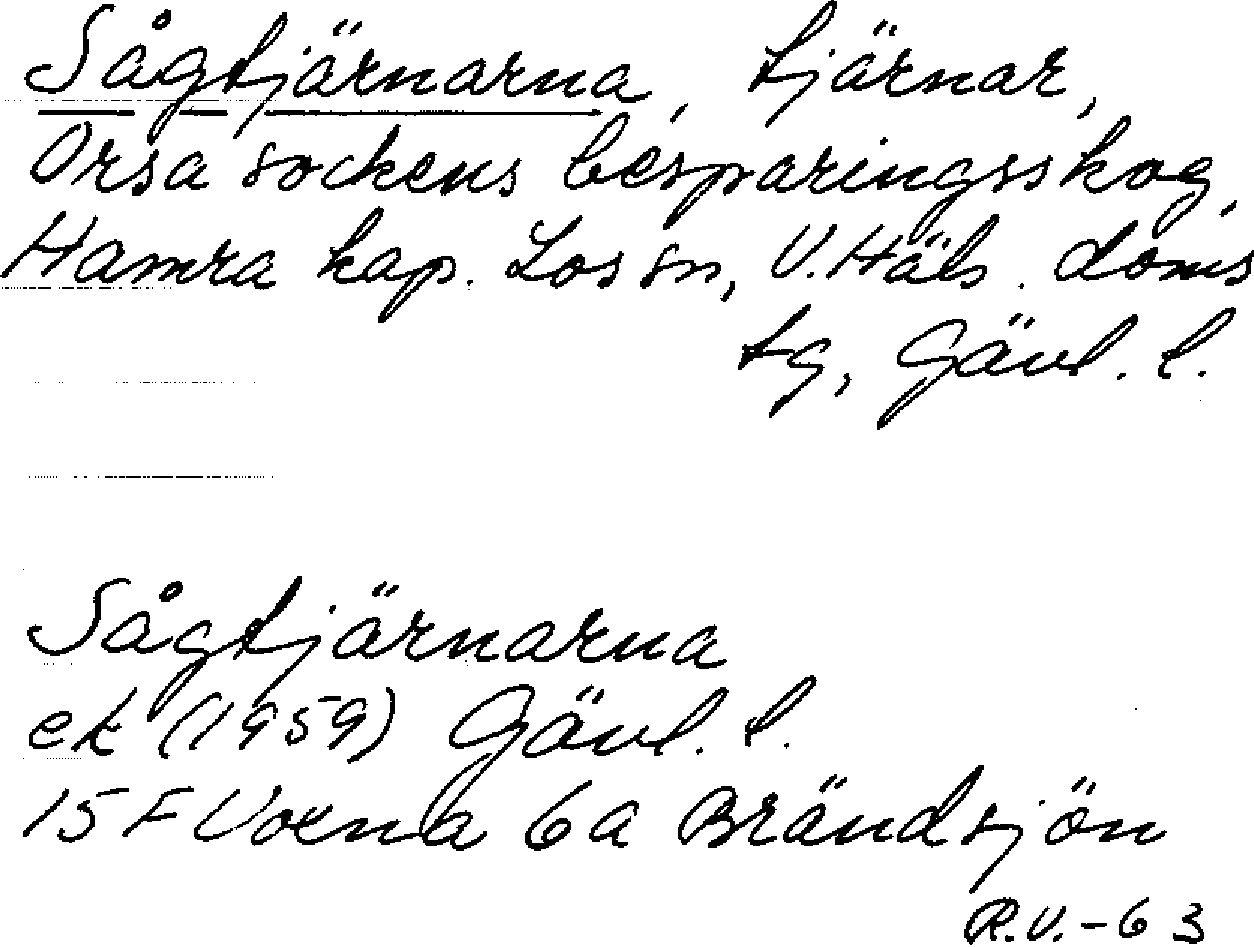 Sågtjärnarna, tjärnar,
Orsa sockens besparingsskog,
Hamra kap. Los sn, V. Häls. doms
tg, Gävl. l.
Sågtjärnarna
ek (1959) Gävl. l.
15 F Voxna 6a Brändsjön
R.V. - 63